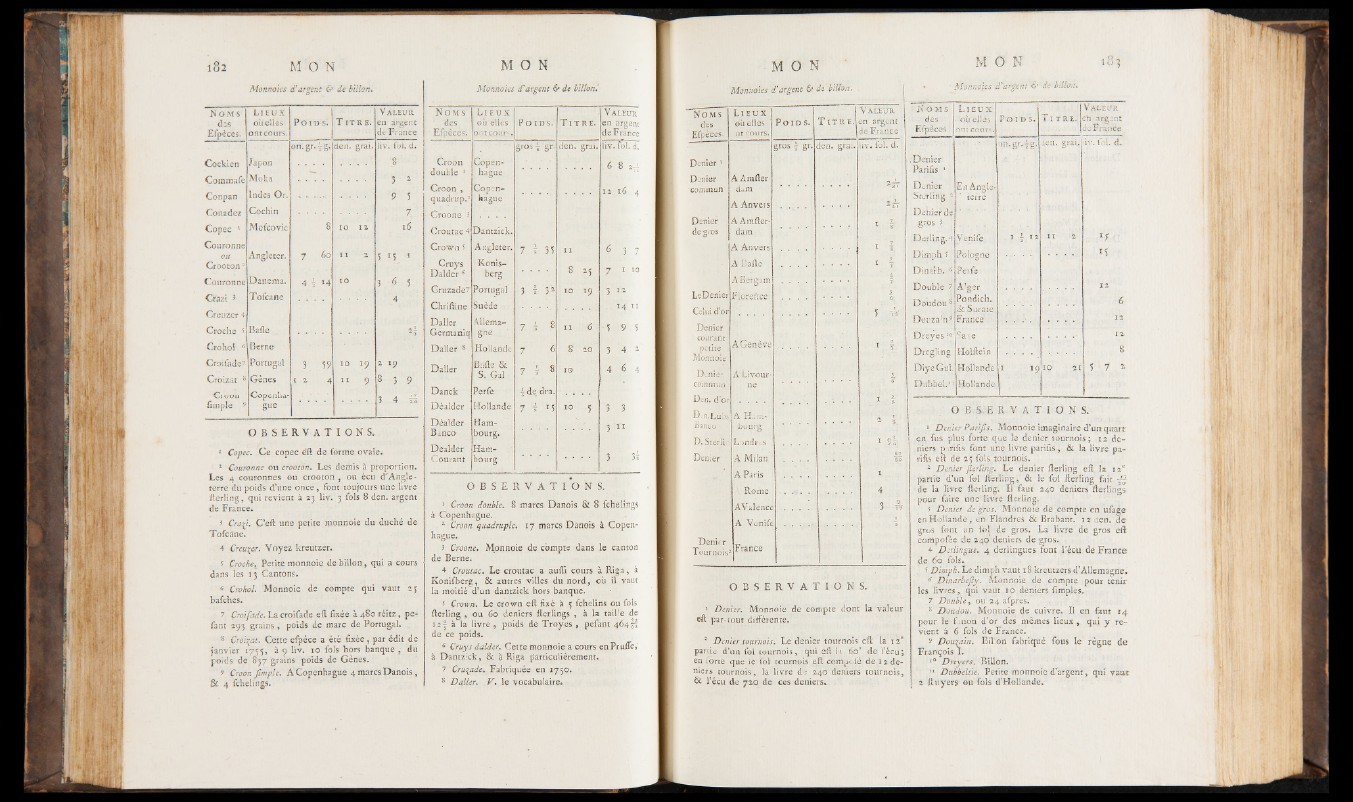 182 M O N
Monnoies d'argent & de billon.
NOMS des Espéces. LIEUX où elles ont cours. POIDS. TITRE. VALEUR en argent de France
on. gr. ½ g. den. grai. liv. sol. d.
Cockien Japon . . . . . . . . 8
Commasse Moka . . . . . . . . 3 2
Conpan Indes Or. . . . . . . . . 9 5
Conadez Cochin . . . . . . . . 7
Copec ¹ Moscovie 8 10 12 16
Couronne ou Crooton ² Angleter. 7 60 11 2 5 15 1
Couronne Danema. 4 ½ 14 10 3 6 5
Crazi ³ Toscane 4
Creuzer ⁴
Croche ⁵ Basle . . . . . . . . 2½
Crohol ⁶ Berne
Croisade ⁷ Portugal 3 59 10 19 2 19
Croizat ⁸ Gênes 1 2 4 11 9 8 3 9
Croon simple ⁹ Copenha-gue . . . . . . . . 3 4
OBSERVATIONS.
¹ Copec. Ce copec est de forme ovale.
² Couronne ou crooton. Les demis à proportion.
Les 4 couronnes ou crooton, ou écu d'Angle-
terre du poids d'une once, font toujours une livre
sterling, qui revient à 23 liv. 3 sols 8 den. argent
de France.
³ Crazi. C'est une petite monnoie du duché de
Toscane.
⁴ Creuzer. Voyez kreutzer.
⁵ Croche, Petite monnoie de billon, qui a cours
dans les 13 Cantons.
⁶ Crohol. Monnoie de compte qui vaut 25
basches.
⁷ Croisade. La croisade est fixée à 480 réitz, pe-
sant 293 grains, poids de marc de Portugal.
⁸ Croizat. Cette espéce a été fixée, par édit de
janvier 1755, à 9 liv. 10 sols hors banque, du
poids de 837 grains poids de Gênes.
⁹ Croon simple. A Copenhague 4 marcs Danois,
& 4 schelings.
M O N
Monnoies d'argent & de billon.
NOMS des Espéces. LIEUX où elles ont cour. POIDS. TITRE. VALEUR en argent de France
gros ½ gr den. grai. liv. sol. d.
Croon double ¹ Copen-hague . . . . . . . . 6 8
Croon, quadrup. ² Copen-hague . . . . . . . . 12 16 4
Croone ³ . . . .
Croutac ⁴ Dantzick.
Crown ⁵ Angleter. 7 ½ 35 11 6 3 7
Cruys Dalder ⁶ Konis-berg . . . . 8 25 7 1 10
Cruzade ⁷ Portugal 3 ½ 32 10 19 3 12
Christine Suède . . . . 14 11
Daller Germaniq Allema-gne 7 ½ 8 11 6 5 9 5
Daller ⁸ Hollande 7 6 8 20 3 4 2
Daller Basle & S. Gal 7 ½ 8 10 4 6 4
Danck Perse ½ de dra. . . . .
Déalder Hollande 7 ½ 15 10 5 3 3
Déalder Banco Ham-bourg. . . . . . . . . 3 11
Dealder Courant Ham-bourg . . . . . . . . 3 3½
OBSERVATIONS.
¹ Croon double. 8 marcs Danois & 8 schelings
à Copenhague.
² Croon quadruple. 17 marcs Danois à Copen-
hague.
³ Croone. Monnoie de compte dans le canton
de Berne.
⁴ Croutac. Le croutac a aussi cours à Riga, à
Konisberg, & autres villes du nord, où il vaut
la moitié d'un dantzick hors banque.
⁵ Crown. Le crown est fixé à 5 schelins ou sols
sterling, ou 60 deniers sterlings, à la taille de
12 à la livre, poids de Troyes, pesant 464
de ce poids.
⁶ Cruys dalder. Cette monnoie a cours en Prusse,
à Dantzick, & à Riga particuliérement.
⁷ Cruzade. Fabriquée en 1750.
⁸ Daller. V. le vocabulaire.
M O N
Monnoies d'argent & de billon.
NOMS des Espéces. LIEUX où elles ont cours. POIDS. TITRE. VALEUR en argent de France
gros ½ gr. den. grai. liv. sol. d.
Denier ¹
Denier commun A Amster dam . . . . . . . .
A Anvers . . . . . . . .
Denier de gros A Amster-dam . . . . . . . . 1
A Anvers . . . . . . . . 1
A Basle . . . . . . . . 1
A Bergam . . . . . . . .
Le Denier Florence . . . . . . . .
Celui d'or . . . . . . . . 5
Denier courant petite Monnoie A Genève . . . . . . . . 1
Denier commun A Livour-ne . . . . . . . .
Den. d'or . . . . . . . . 1
Den. Lubs Banco A Ham-bourg . . . . . . . . 2
D. Sterli. Londres . . . . . . . . 1
Denier A Milan . . . . . . . .
A Paris . . . . . . . . 1
Rome . . . . . . . . 4
A Valence . . . . . . . . 3
A Venise . . . . . . . .
Denier Tournois ² France
OBSERVATIONS.
¹ Denier. Monnoie de compte dont la valeur
est par-tout différente.
² Denier tournois. Le denier tournois est la 12e
partie d'un sol tournois, qui est la 60e de l'écu;
en sorte que le sol tournois est composé de 12 de-
niers tournois, la livre de 240 deniers tournois,
& l'écu de 720 de ces deniers.
M O N 183
Monnoies d'argent & de billon.
NOMS des Espéces LIEUX où elles ont cours. POIDS. TITRE. VALEUR en argent de France
on. gr. ½ g. den. grai. liv. sol. d.
Denier Parisis ¹
Denier Sterling ² En Angle-terre
Denier de gros ³
Derling. ⁴ Venise 1 ½ 12 11 2 15
Dimph ⁵ Pologne . . . . . . . . 15
Dinarb. ⁶ Perse
Double ⁷ Alger . . . . . . . . 12
Doudou ⁸ Pondich. & Surate . . . . . . . . 6
Douzain ⁹ France . . . . . . . . 12
Dreyes ¹⁰ Saxe . . . . . . . . 12
Dregling Holstein . . . . . . . . 8
Diye Gul. Hollande 1 19 10 21 5 7 2
Dubbel. ¹¹ Hollande
OBSERVATIONS.
¹ Denier Parisis. Monnoie imaginaire d'un quart
en sus plus forte que le denier tournois; 12 de-
niers parisis font une livre parisis, & la livre pa-
risis est de 25 sols tournois.
² Denier sterling. Le denier sterling est la 12e
partie d'un sol sterling, & le sol sterling fait
de la livre sterling. Il faut 240 deniers sterlings
pour faire une livre sterling.
³ Denier de gros. Monnoie de compte en usage
en Hollande, en Flandres & Brabant. 12 den. de
gros font un sol de gros. La livre de gros est
composée de 240 deniers de gros.
⁴ Derlingue. 4 derlingues font l'écu de France
de 60 sols.
⁵ Dimph. Le dimph vaut 18 kreutzers d'Allemagne.
⁶ Dinarbesly. Monnoie de compte pour tenir
les livres, qui vaut 10 deniers simples.
⁷ Double, ou 24 aspres.
⁸ Doudou. Monnoie de cuivre. Il en faut 14
pour le fanon d'or des mêmes lieux, qui y re-
vient à 6 sols de France.
⁹ Douzain. Billon fabriqué sous le régne de
François I.
¹⁰ Dreyers. Billon.
¹¹ Dubbeltie. Petite monnoie d'argent, qui vaut
2 stuyers ou sols d'Hollande.